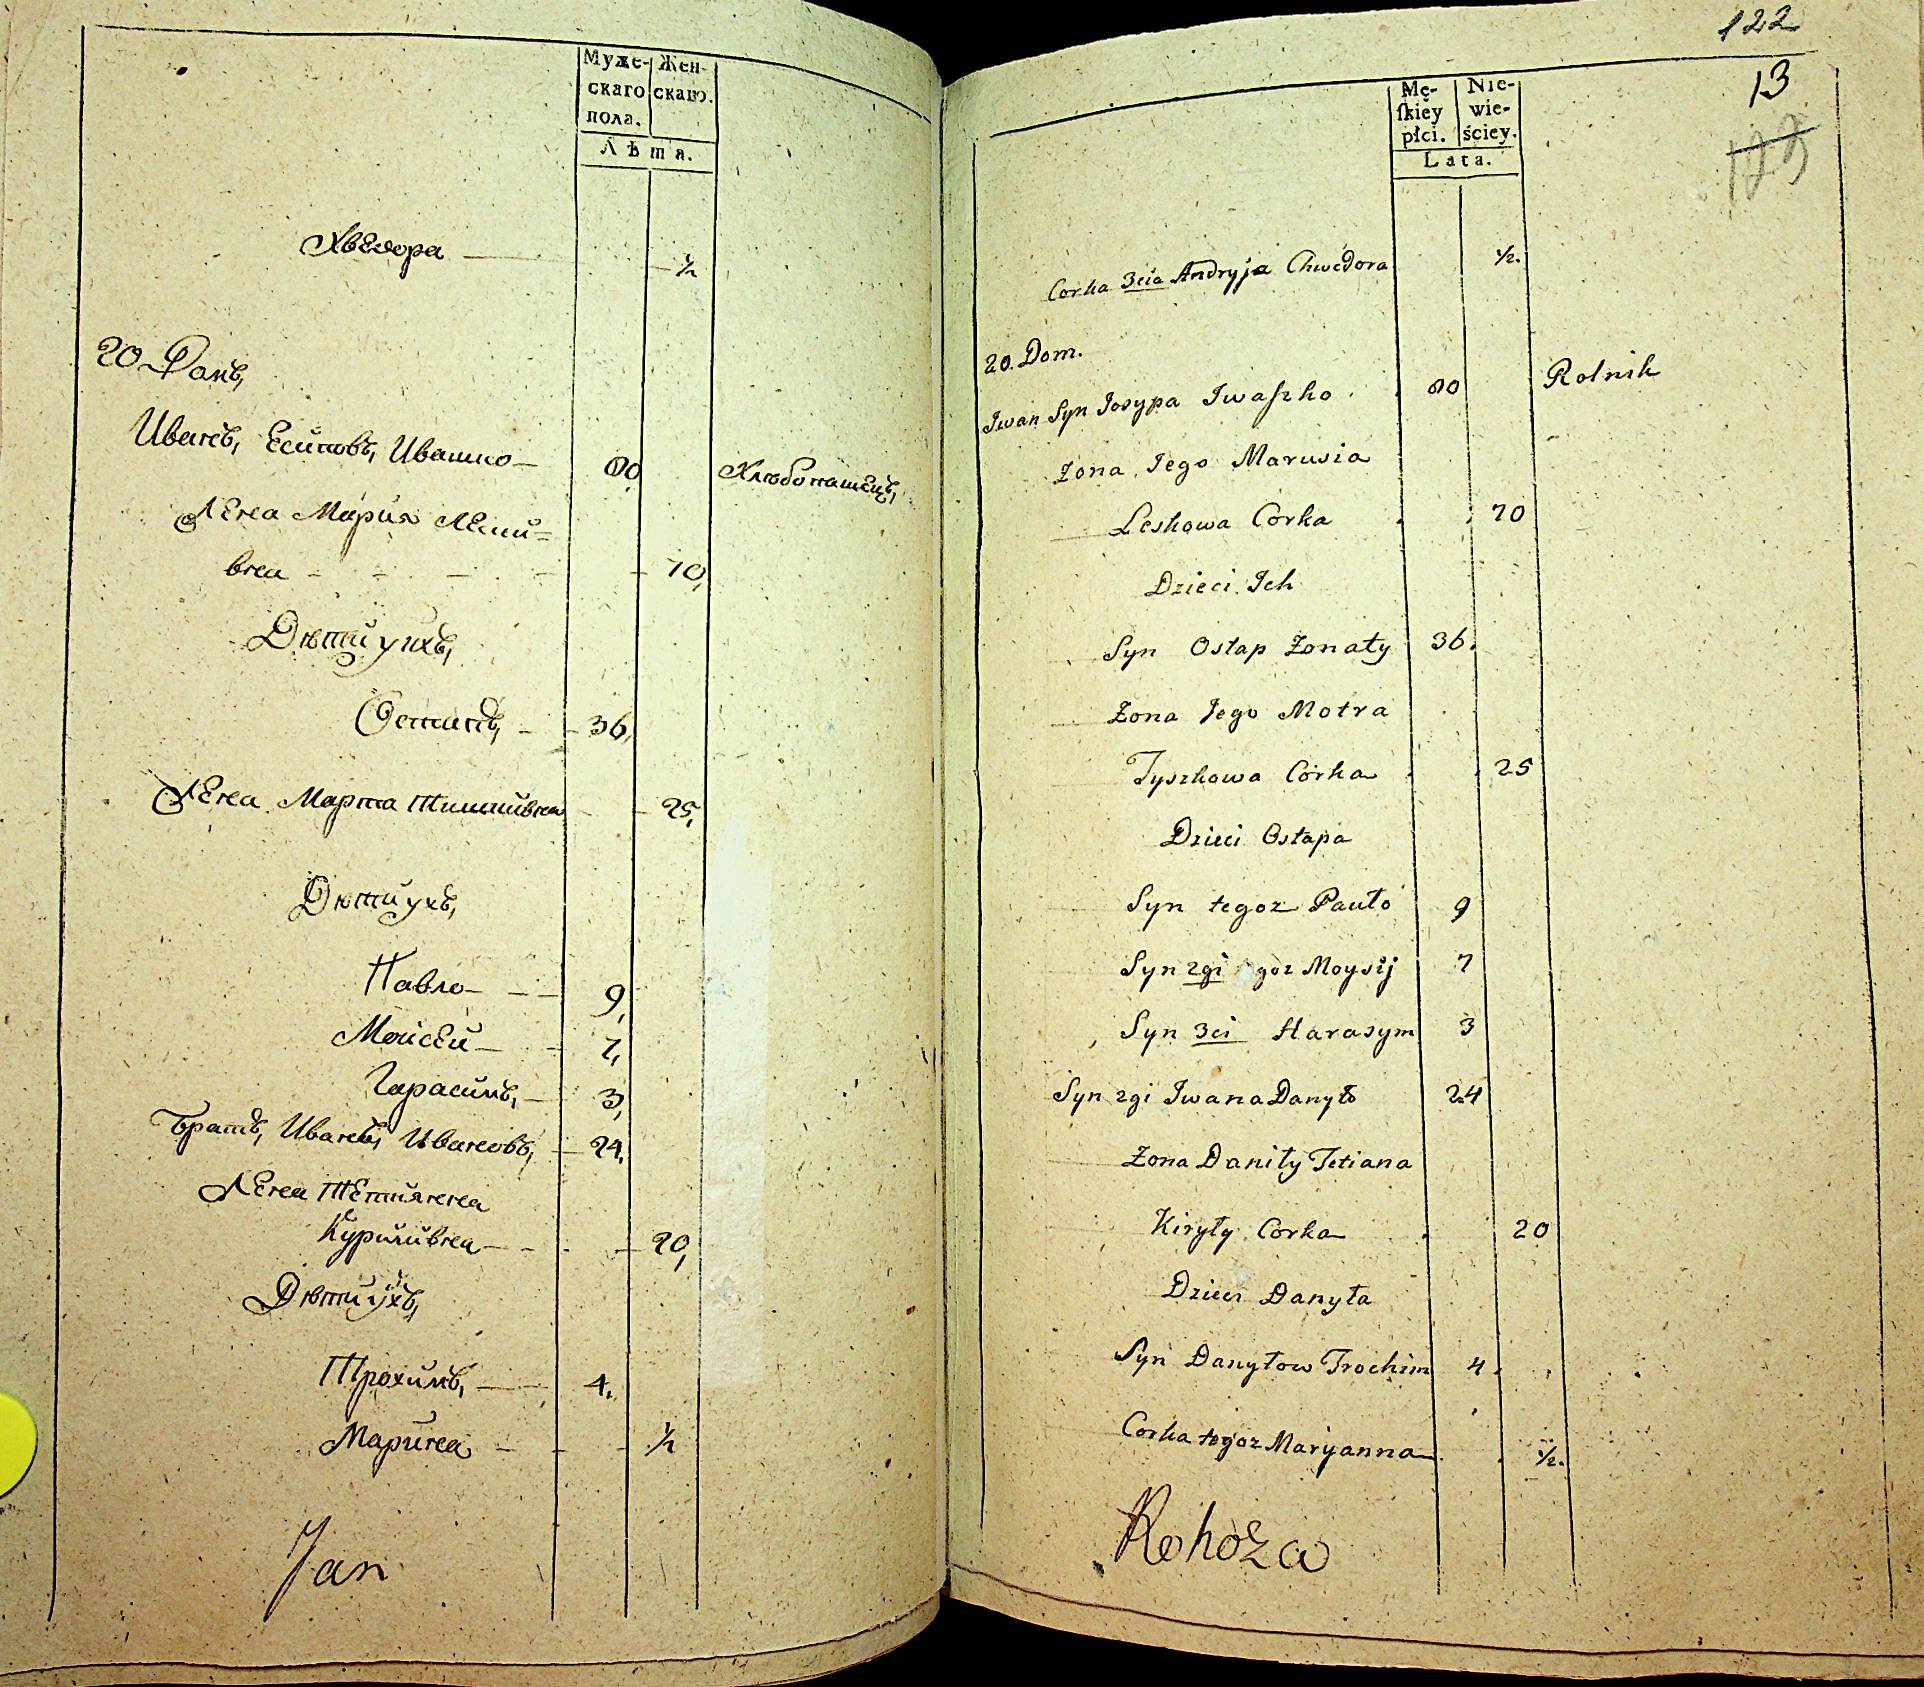 Муже-
скаго
пола.
Жен-
скаго.
Лѣта.
Хведора ½
20 Домъ,
Иванъ, Есиповъ, Ивашко 80, Хлѣбопашецъ,
Жена Мария Леши-
вна 70,
Дѣти ихъ,
Остапъ, 36,
Жена Марта Тишкивна 25,
Дѣти ихъ,
Павло 9,
Моисей 7,
Гарасимъ, 3,
Братъ, Иванъ, Ивановъ, 24,
Жена Тетиянна
Куриливна 20,
Дѣти ихъ,
Трохимъ, 4,
Марина ½
Jan
122
13
123
Mę-
ſkiéy
płci.
Nie-
wie-
ściey.
Lata.
Corka 3cia Andryja Chwedora ½.
20. Dom.
Jwan Syn Josypa Jwaſzko 80 Rolnik
Żona Jego Marusia
Leskowa Corka 70
Dzieci Jch
Syn Ostap Żonaty 36.
Żona Jego Motra
Tyszkowa Córka 25
Dzieci Ostapa
Syn tegoz Pauło 9
Syn 2gi goz Moysij 7
Syn 3ci Harasym 3
Syn 2gi Jwana Danyło 24
Żona Daniły Tetiana
Kiryły Corka 20
Dzieci Danyła
Syn Danyłow Trochim 4.
Corka tegoz Maryanna ½.
Rohoza